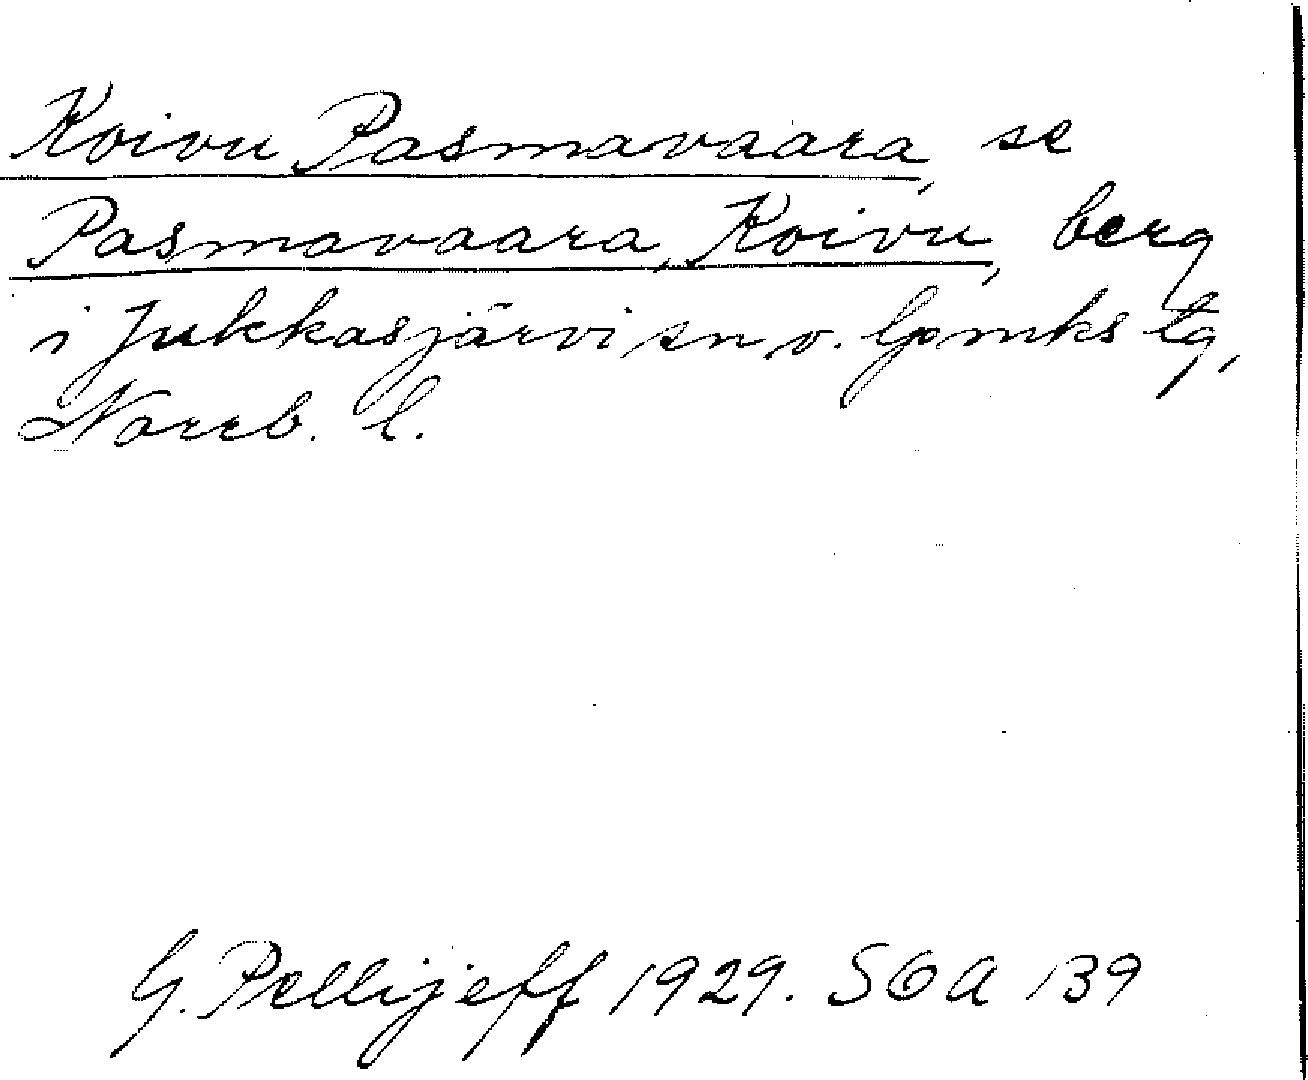 Koivu Pasmavaara, se
Pasmavaara, Koivu, berg
i Jukkasjärvi sn o. lpmks tg,
Norrb. l.
G. Pellijeff 1929. SOA 139